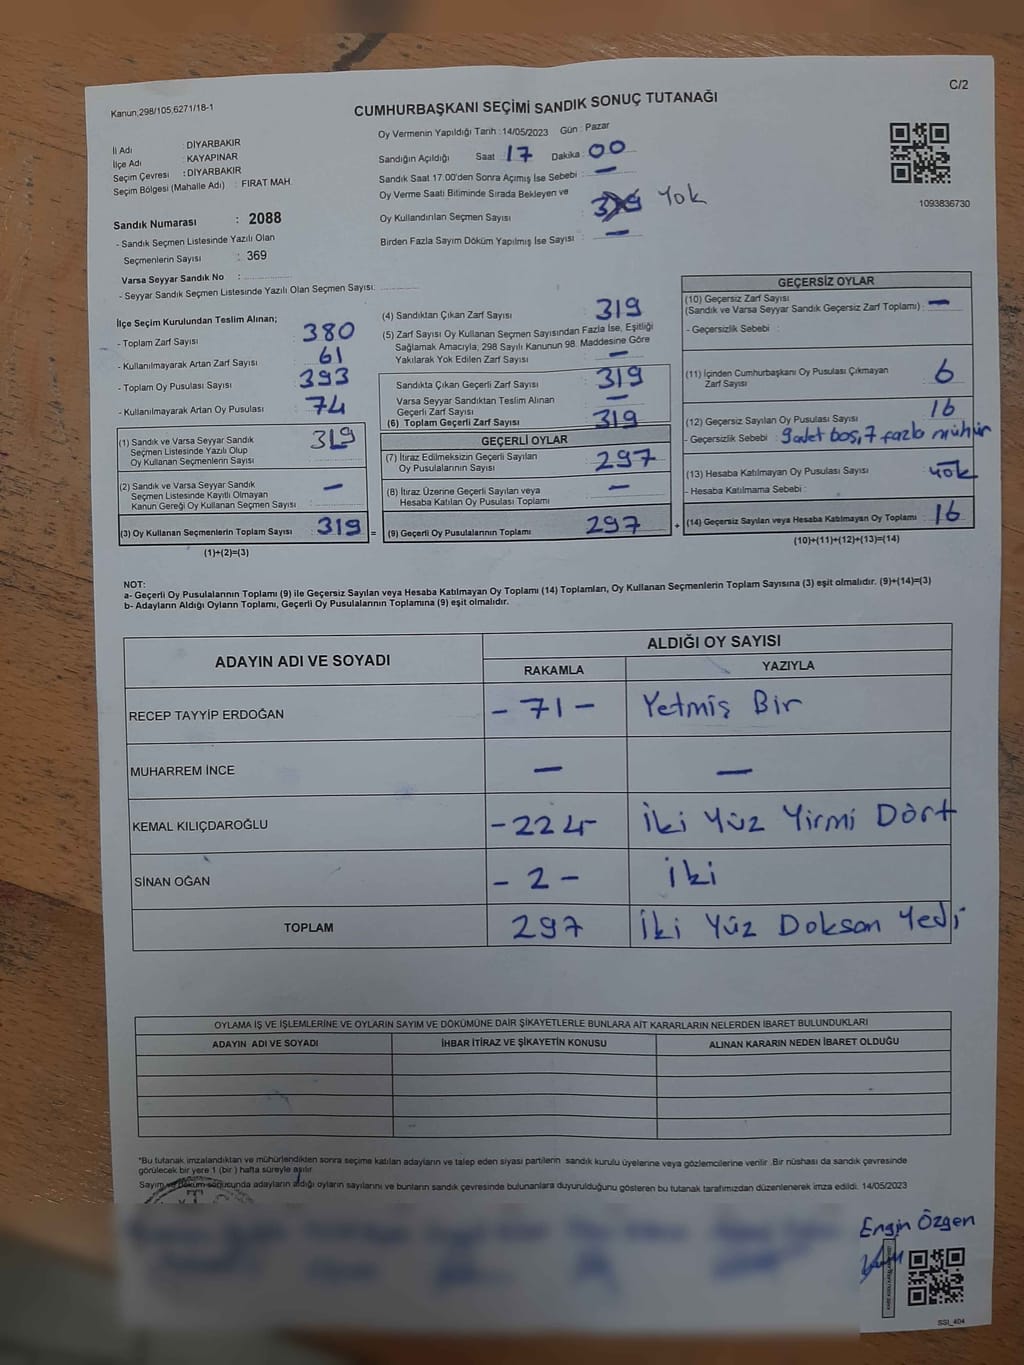 Kanun;298/105,6271/18-1
C/2
CUMHURBAŞKANI SEÇİMİ SANDIK SONUÇ TUTANAĞI
İl Adı : DİYARBAKIR
İlçe Adı : KAYAPINAR
Seçim Çevresi : DİYARBAKIR
Seçim Bölgesi (Mahalle Adı) : FIRAT MAH.
Sandık Numarası : 2088
- Sandık Seçmen Listesinde Yazılı Olan
Seçmenlerin Sayısı : 369
Varsa Seyyar Sandık No :
- Seyyar Sandık Seçmen Listesinde Yazılı Olan Seçmen Sayısı:
Oy Vermenin Yapıldığı Tarih : 14/05/2023 Gün : Pazar
Sandığın Açıldığı Saat 17 Dakika : 00
Sandık Saat 17:00'den Sonra Açımış İse Sebebi : —
Oy Verme Saati Bitiminde Sırada Bekleyen ve
Oy Kullandırılan Seçmen Sayısı : 319 Yok
Birden Fazla Sayım Döküm Yapılmış İse Sayısı : —
1093836730
İlçe Seçim Kurulundan Teslim Alınan;
- Toplam Zarf Sayısı 380
- Kullanılmayarak Artan Zarf Sayısı 61
- Toplam Oy Pusulası Sayısı 393
- Kullanılmayarak Artan Oy Pusulası 74
(1) Sandık ve Varsa Seyyar Sandık
Seçmen Listesinde Yazılı Olup
Oy Kullanan Seçmenlerin Sayısı 319
(2) Sandık ve Varsa Seyyar Sandık
Seçmen Listesinde Kayıtlı Olmayan
Kanun Gereği Oy Kullanan Seçmen Sayısı —
(3) Oy Kullanan Seçmenlerin Toplam Sayısı 319 =
(1)+(2)=(3)
(4) Sandıktan Çıkan Zarf Sayısı 319
(5) Zarf Sayısı Oy Kullanan Seçmen Sayısından Fazla İse, Eşitliği
Sağlamak Amacıyla, 298 Sayılı Kanunun 98. Maddesine Göre
Yakılarak Yok Edilen Zarf Sayısı —
Sandıkta Çıkan Geçerli Zarf Sayısı 319
Varsa Seyyar Sandıktan Teslim Alınan
Geçerli Zarf Sayısı —
(6) Toplam Geçerli Zarf Sayısı 319
GEÇERLİ OYLAR
(7) İtiraz Edilmeksizin Geçerli Sayılan
Oy Pusulalarının Sayısı 297
(8) İtiraz Üzerine Geçerli Sayılan veya
Hesaba Katılan Oy Pusulası Toplamı —
(9) Geçerli Oy Pusulalarının Toplamı 297 +
GEÇERSİZ OYLAR
(10) Geçersiz Zarf Sayısı
(Sandık ve Varsa Seyyar Sandık Geçersiz Zarf Toplamı) : —
- Geçersizlik Sebebi :
(11) İçinden Cumhurbaşkanı Oy Pusulası Çıkmayan
Zarf Sayısı 6
(12) Geçersiz Sayılan Oy Pusulası Sayısı 16
- Geçersizlik Sebebi : 9 adet boş, 7 fazla mühür
(13) Hesaba Katılmayan Oy Pusulası Sayısı yok
- Hesaba Katılmama Sebebi :
(14) Geçersiz Sayılan veya Hesaba Katılmayan Oy Toplamı 16
(10)+(11)+(12)+(13)=(14)
NOT:
a- Geçerli Oy Pusulalarının Toplamı (9) ile Geçersiz Sayılan veya Hesaba Katılmayan Oy Toplamı (14) Toplamları, Oy Kullanan Seçmenlerin Toplam Sayısına (3) eşit olmalıdır. (9)+(14)=(3)
b- Adayların Aldığı Oyların Toplamı, Geçerli Oy Pusulalarının Toplamına (9) eşit olmalıdır.
ADAYIN ADI VE SOYADI
ALDIĞI OY SAYISI
RAKAMLA YAZIYLA
RECEP TAYYİP ERDOĞAN - 71 - Yetmiş Bir
MUHARREM İNCE — —
KEMAL KILIÇDAROĞLU - 224 - İki Yüz Yirmi Dört
SİNAN OĞAN - 2 - İki
TOPLAM 297 İki Yüz Doksan Yedi
OYLAMA İŞ VE İŞLEMLERİNE VE OYLARIN SAYIM VE DÖKÜMÜNE DAİR ŞİKAYETLERLE BUNLARA AİT KARARLARIN NELERDEN İBARET BULUNDUKLARI
ADAYIN ADI VE SOYADI İHBAR İTİRAZ VE ŞİKAYETİN KONUSU ALINAN KARARIN NEDEN İBARET OLDUĞU
*Bu tutanak imzalandıktan ve mühürlendikten sonra seçime katılan adayların ve talep eden siyasi partilerin sandık kurulu üyelerine veya gözlemcilerine verilir .Bir nüshası da sandık çevresinde
görülecek bir yere 1 (bir ) hafta süreyle asılır.
Sayım ve döküm sonucunda adayların aldığı oyların sayılarını ve bunların sandık çevresinde bulunanlara duyurulduğunu gösteren bu tutanak tarafımızdan düzenlenerek imza edildi. 14/05/2023
Engin Özgen
SSI_404